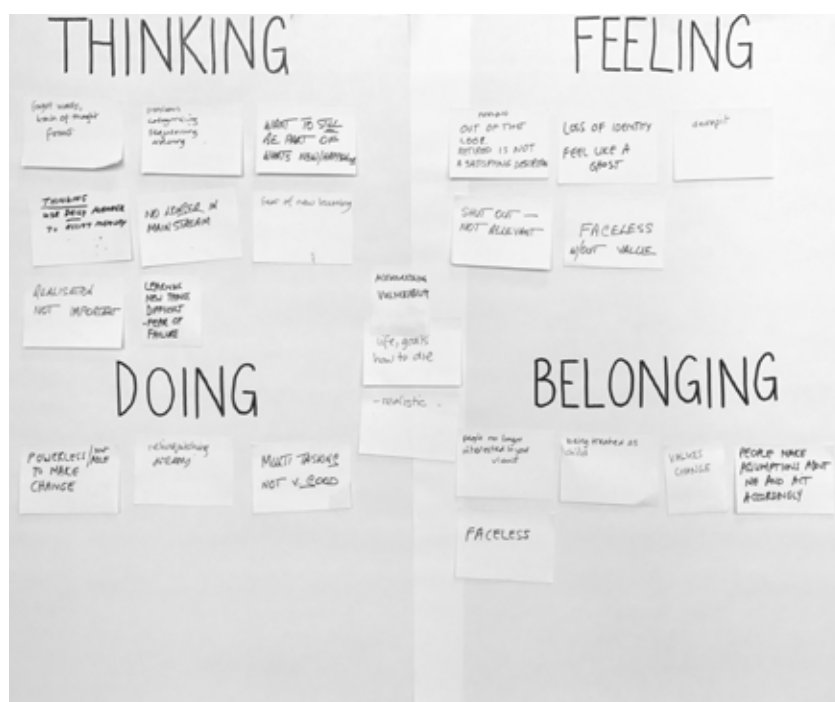 THINKING
forget words,
train of thought
focus
categorising
WANT TO STILL
BE PART OF
WHATS NEW/HAPPENING
THINKING
USE DAILY
TO ASSIST MEMORY
NO LONGER IN
MAINSTREAM
fear of new learning
REALISATION
NOT IMPORTANT
LEARNING
NEW THINGS
DIFFICULT
-FEAR OF
FAILURE
FEELING
OUT OF THE
LOOP.
RETIRED IS NOT
A SATISFYING DESCRIPTION
LOSS OF IDENTITY
FEEL LIKE A
GHOST
decrepit
SHUT OUT —
NOT RELEVANT
FACELESS
W/OUT VALUE
VULNERABILITY
life, goals
how to die
- realistic
DOING
POWERLESS/NOT ABLE
TO MAKE
CHANGE
relinquishing
MULTI TASKING
NOT V. GOOD
BELONGING
people no longer
interested in your
views
being treated as
child
VALUES
CHANGE
PEOPLE MAKE
ASSUMPTIONS ABOUT
ME AND ACT
ACCORDINGLY
FACELESS